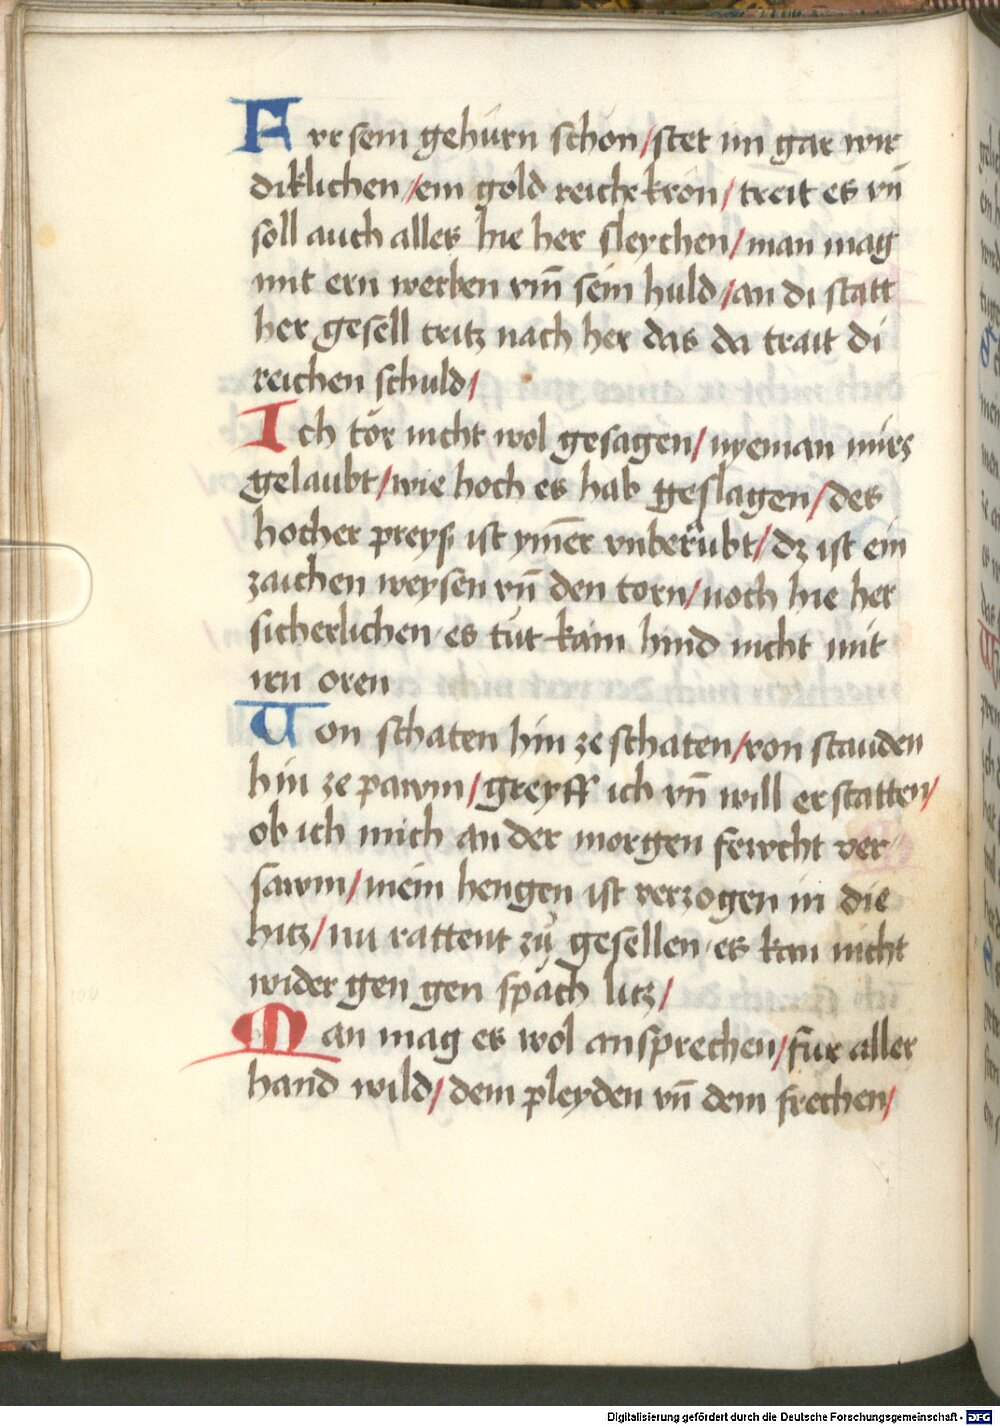 Err sein gehürn schon/stet im gar wir
diklichen/ein gold reiche kron/treit es vn̄
soll auch alles hie her sleychen/man mag
mit ern werben vm̄ sein huld/an di statt
her gesell tritz nach her das da trait di
reichen schuld/
Ich tör nicht wol gesagen/nyeman mirs
gelaubt/wie hoch es hab geslagen/des
hocher preyß ist ym̄er vnberübt/dz ist ein
zaichen weysen vn̄ den torn/noch hie her
sicherlichen es tüt kain hind nicht mit
iren oren
Von schaten hin ze schaten/von stauden
hin ze pawm/greyff ich vn̄ will erstatten/
ob ich mich an der morgen fewcht ver
sawm/mein hengen ist verzogen in die
hitz/nu rattent zů gesellen es kan nicht
wider gen gen spach litz/
Man mag es wol ansprechen/für aller
hand wild/dem pleyden vn̄ dem frechen/
Digitalisierung gefördert durch die Deutsche Forschungsgemeinschaft - DFG